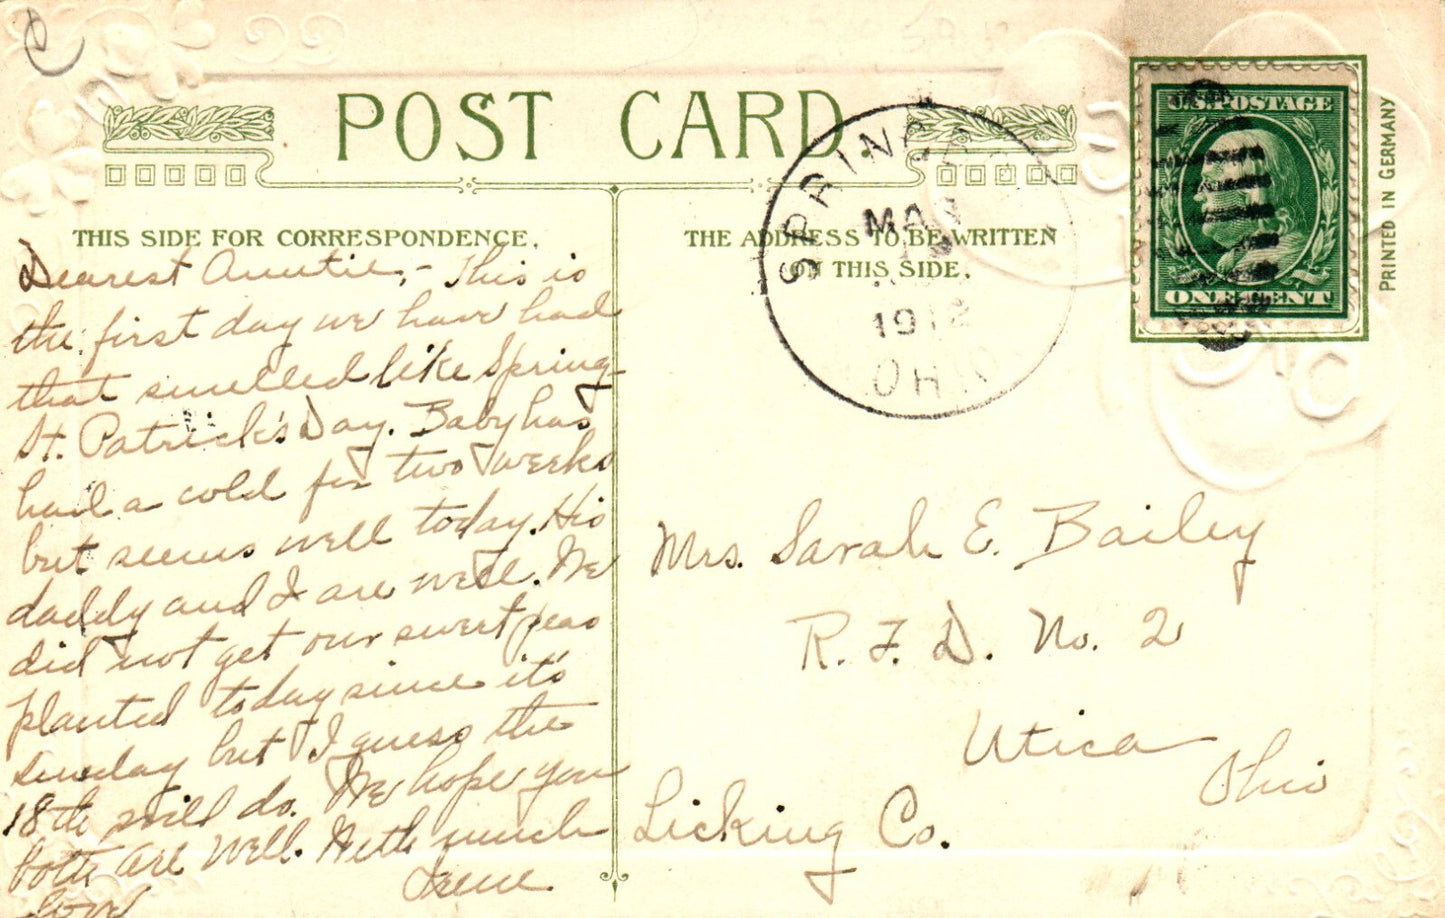 POST CARD.
THIS SIDE FOR CORRESPONDENCE.
Dearest Auntie,- This is
the first day we have had
that smelled like Spring
St. Patrick's Day. Baby has
had a cold for two weeks
but seems well today. His
daddy and I are well. We
did not get our sweet peas
planted today since it's
Sunday but I guess the
18th will do. We hope you
both are well. With much
love Irene
THE ADDRESS TO BE WRITTEN
ON THIS SIDE.
SPRING
MAR
18
1912
OHIO
U.S. POSTAGE
ONE CENT
PRINTED IN GERMANY
Mrs. Sarah E. Bailey
R. F. D. No. 2
Utica
Ohio
Licking Co.